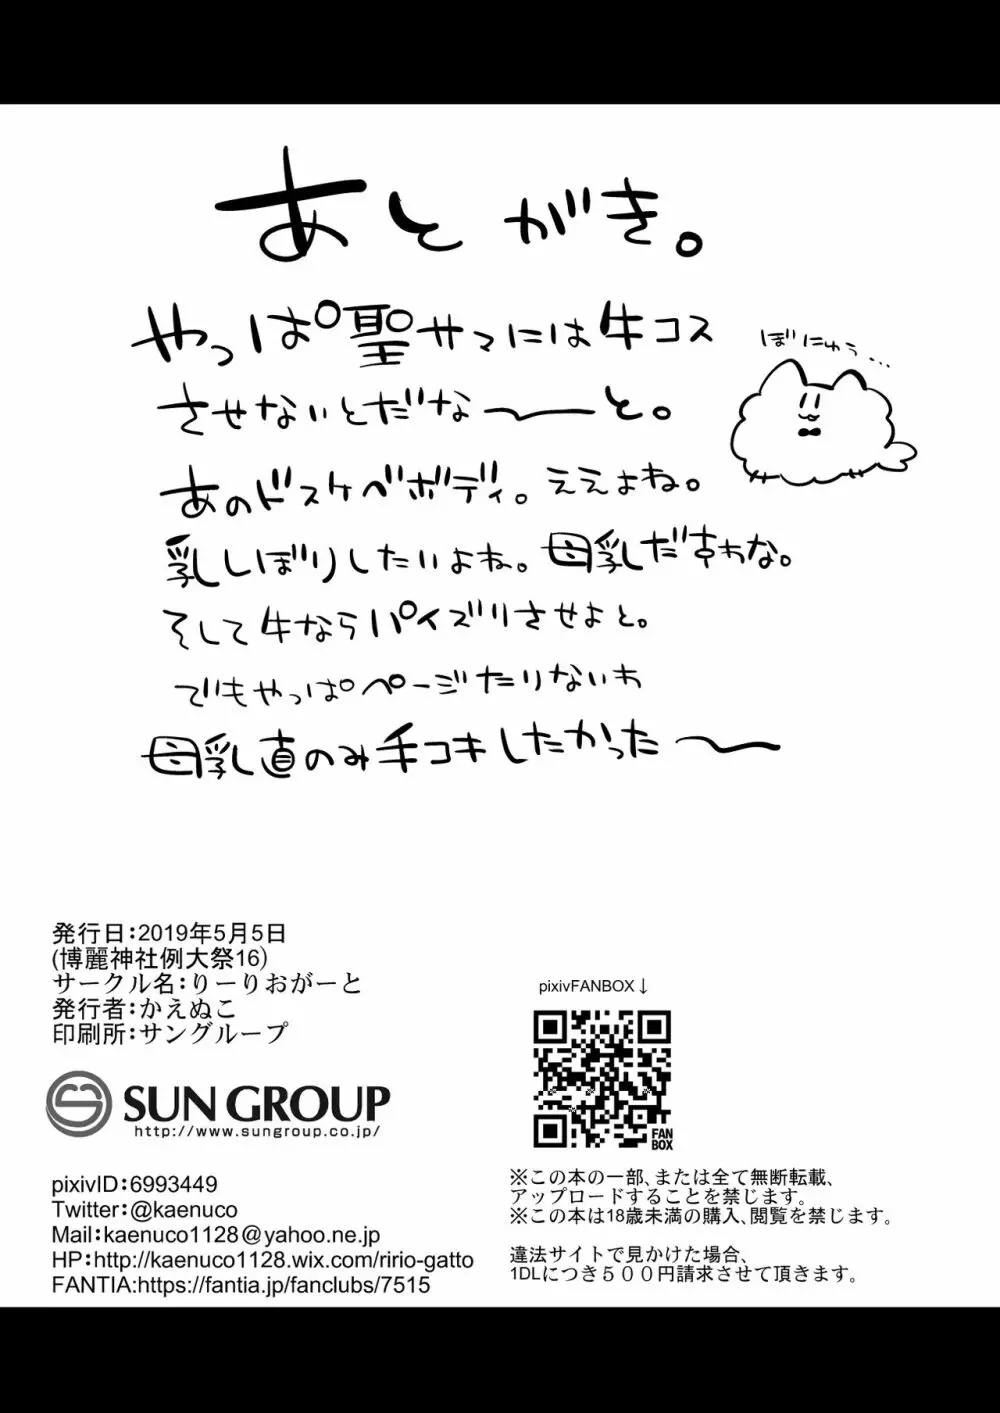 あとがき。
やっぱ聖サマには牛コス
ぼにゅう...
させないとだな〜〜と。
あのドスケベボディ。ええよね。
乳しぼりしたいよね。母乳だすわな。
そして牛ならパイズリさせよと。
でもやっぱページたりないわ
母乳直のみ手コキしたかった〜〜
発行日：2019年5月5日
(博麗神社例大祭16)
サークル名：りーりおがーと
発行者：かえぬこ
印刷所：サングループ
SUN GROUP
http://www.sungroup.co.jp/
pixivID：6993449
Twitter：@kaenuco
Mail：kaenuco1128@yahoo.ne.jp
HP：http://kaenuco1128.wix.com/ririo-gatto
FANTIA:https://fantia.jp/fanclubs/7515
pixivFANBOX↓
FAN
BOX
※この本の一部、または全て無断転載、
アップロードすることを禁じます。
※この本は18歳未満の購入、閲覧を禁じます。
違法サイトで見かけた場合、
1DLにつき５００円請求させて頂きます。